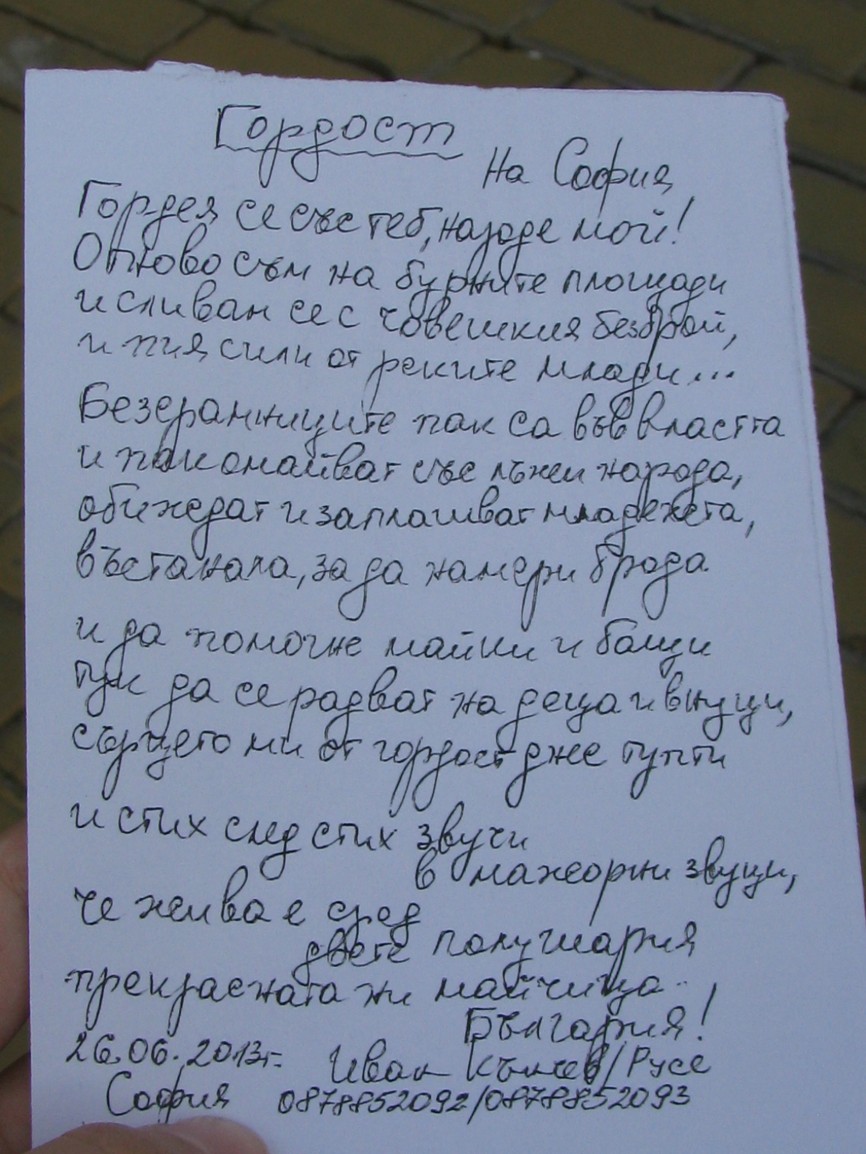 Гордост
На София
Гордея се със теб, народе мой!
Отново съм на бурните площади
и сливам се с човешкия безброй,
и пия сили от реките млади...
Безгранниците пак са във властта
и пак омайват със лъжи народа,
обиждат и заплашват младежта,
въстанала, за да намери брода
и да помогне майки и бащи
тук да се радват на деца и внуци,
сърцето ми от гордост дже тупти
и стих след стих звучи
в мажорни звуци,
че жива е сред
двете полушария
прекрасната ни майчица..
България!
26.06.2013г. Иван Кънчев/Русе
София 0878852092/0878852093